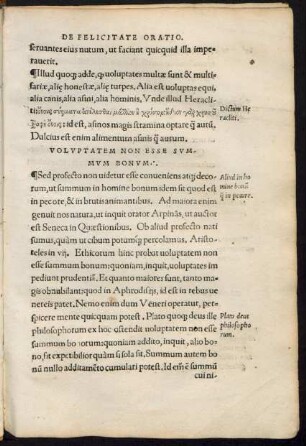 DE FELICITATE ORATIO.
seruantes eius nutum, ut faciant quicquid illa impe-
rauerit.
¶Illud quoq; adde, q uoluptates multæ sunt & multi-
fariæ, alię honestæ, alię turpes. Alia est uoluptas equi,
alia canis, alia asini, alia hominis, Vnde illud Heracliti
id est, asinos magis stramina optare q̃ aurũ.
Dictum He
racliti.
Dulcius est enim alimentum asinis q̃ aurum.
VOLVPTATEM NON ESSE SVM-
MVM BONVM.
¶Sed profecto non uidetur esse conueniens atq; deco-
rum, ut summum in homine bonum idem sit quod est
in pecore, & in brutis animantibus. Ad maiora enim
Aliud in ho
mine bonũ
q̃ in pecore.
genuit nos natura, ut inquit orator Arpinas, ut auctor
est Seneca in Quæstionibus. Ob aliud profecto nati
sumus, quàm ut cibum potumq; percolamus. Aristo-
teles in vij. Ethicorum hinc probat uoluptatem non
esse summum bonum: inquit, uoluptates im
pediunt prudentiã. Et quanto maiores sunt, tanto ma-
gis obnubilant: quod in Aphrodisijs, id est in rebus ue
neteis patet. Nemo enim dum Veneri operatur, per-
spicere mente quicquam potest. Plato quoq; deus ille
philosophorum ex hoc ostendit uoluptatem non esse
Plato deus
philosopho
rum.
summum bonum: quoniam addito, inquit, alio bo-
no, fit expetibilior quàm si sola sit. Summum autem bo
nũ nullo additamẽto cumulati potest. Id est em̃ summũ
cui ni-